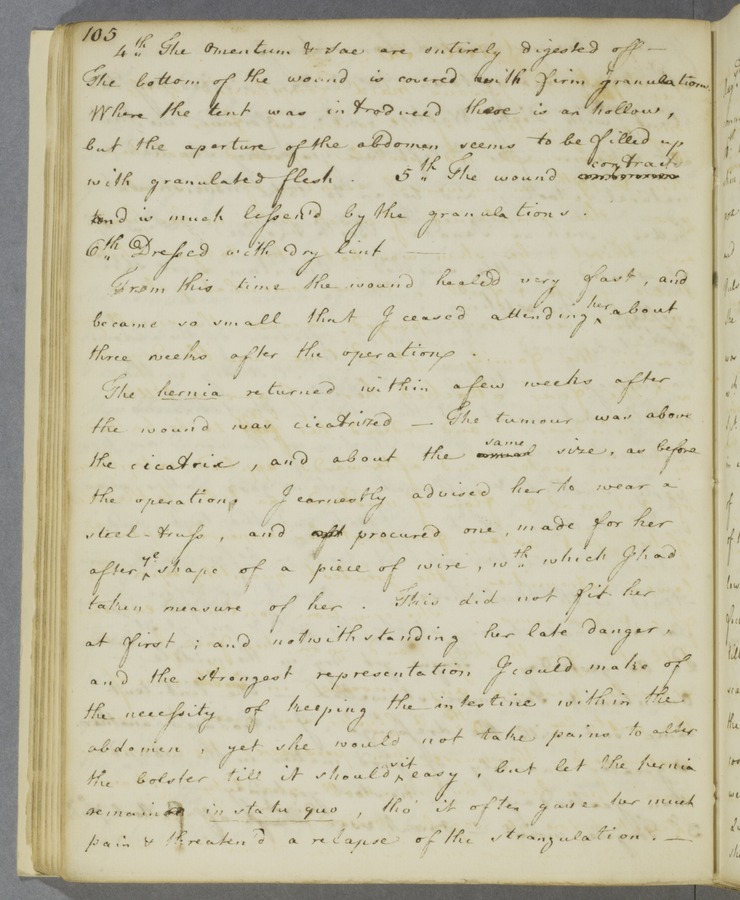 105
4th The Omentum & sac are entirely digested off —
The bottom of the wound is covered with firm granulations.
Where the tent was introduced there is an hollow,
but the aperture of the abdomen seems to be filled up
with granulated flesh. 5th The wound contract-
and is much lessen'd by the granulations.
6th Dressed with dry lint —
From this time the wound heal'd very fast, and
became so small that I ceased attending her about
three weeks after the operation.
The hernia returned within a few weeks after
the wound was cicatrized — The tumour was above
the cicatrix, and about the same size, as before
the operation, I earnestly advised her to wear a
steel-truss, and procured one, made for her
after ye shape of a piece of wire, wth which I had
taken measure of her. This did not fit her
at first; and notwithstanding her late danger,
and the strongest representation I could make of
the necessity of keeping the intestine within the
abdomen, yet she would not take pains to alter
the bolster till it should sit easy, but let the hernia
remain in statu quo, tho' it often gave her much
pain & threaten'd a relapse of the strangulation. —